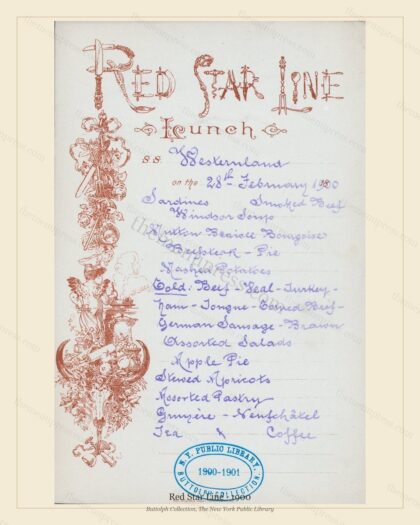 RED STAR LINE
Lunch
S.S. Westernland
on the 28th February 1900
Sardines Smoked Beef
Windsor Soup
Mutton Braisée Bourgoise
Beefsteak - Pie
Mashed Potatoes
Cold: Beef - Veal - Turkey -
Ham - Tongue - Corned Beef -
German Sausage - Brawn
Assorted Salads
Apple Pie
Stewed Apricots
Assorted Pastry
Gruyère - Neufchâtel
Tea Coffee
N.Y. PUBLIC LIBRARY
1900-1901
BUTTOLPH COLLECTION
Red Star Line - 1900
Buttolph Collection, The New York Public Library